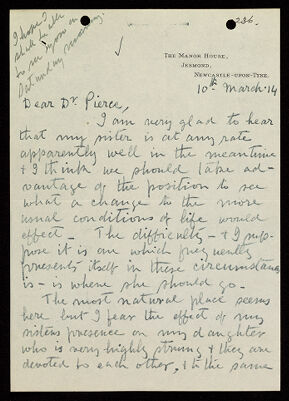 I hope I
shall be able
to see you on
Saturday morning.
236.
THE MANOR HOUSE,
JESMOND,
NEWCASTLE-UPON-TYNE.
10th March '14
Dear Dr. Pierce,
I am very glad to hear
that my sister is at any rate
apparently well in the meantime
& I think we should take ad-
vantage of the position to see
what a change to the more
usual conditions of life would
effect - The difficulty - & I sup-
pose it is one which frequently
presents itself in these circumstances
is - is where she should go -
The most natural place seems
here but I fear the effect of my
sisters presence on my daughter
who is very highly strung & they are
devoted to each other, & to the same